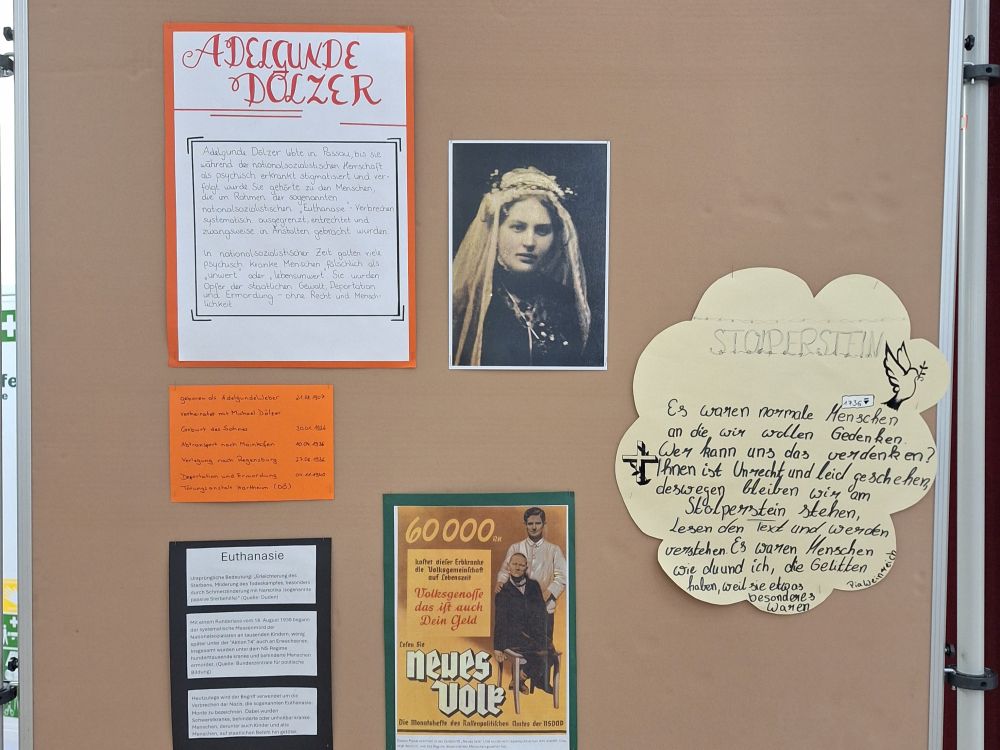 ADELGUNDE
DÖLZER
Adelgunde Dölzer lebte in Passau, bis sie
während der nationalsozialistischen Herrschaft
als psychisch erkrankt stigmatisiert und ver-
folgt wurde. Sie gehörte zu den Menschen,
die im Rahmen der sogenannten
nationalsozialistischen "Euthanasie"-Verbrechen
systematisch ausgegrenzt, entrechtet und
zwangsweise in Anstalten gebracht wurden.
In nationalsozialistischer Zeit galten viele
psychisch kranke Menschen fälschlich als
"unwert" oder "lebensunwert". Sie wurden
Opfer der staatlichen Gewalt, Deportation
und Ermordung - ohne Recht und Mensch-
lichkeit
geboren als Adelgunde Weber 1907
verheiratet mit Michael Dölzer
Geburt des Sohnes
Abtransport nach Mainkofen
Verlegung nach Regensburg
Deportation und Ermordung 04.11.1940
Tötungsanstalt Hartheim (OÖ)
Euthanasie
Ursprüngliche Bedeutung: „Erleichterung des
Sterbens, Milderung des Todeskampfes, besonders
durch Schmerzlinderung mit Narkotika (sogenannte
passive Sterbehilfe)" (Quelle: Duden)
Mit einem Runderlass vom 18. August 1939 begann
der systematische Massenmord der
Nationalsozialisten an tausenden Kindern, wenig
später unter der "Aktion T4" auch an Erwachsenen.
Insgesamt wurden unter dem NS-Regime
hunderttausende kranke und behinderte Menschen
ermordet. (Quelle: Bundeszentrale für politische
Bildung)
Heutzutage wird der Begriff verwendet um die
Verbrechen der Nazis, die sogenannten Euthanasie-
Morde zu bezeichnen. Dabei wurden
Schwerstkranke, behinderte oder unheilbar kranke
Menschen, darunter auch Kinder und alte
Menschen, auf staatlichen Befehl hin getötet.
60000 RM
kostet dieser Erbkranke
die Volksgemeinschaft
auf Lebenszeit
Volksgenosse
das ist auch
Dein Geld
Lesen Sie
neues
Volk
Die Monatshefte des Rassenpolitischen Amtes der NSDAP
STOLPERSTEIN
1736
Es waren normale Menschen
an die wir wollen Gedenken.
Wer kann uns das verdenken?
Ihnen ist Unrecht und leid geschehen,
deswegen bleiben wir am
Stolperstein stehen,
Lesen den Text und werden
verstehen. Es waren Menschen
wie du und ich, die Gelitten
haben, weil sie etwas
besonderes
waren
Pia Weinreich